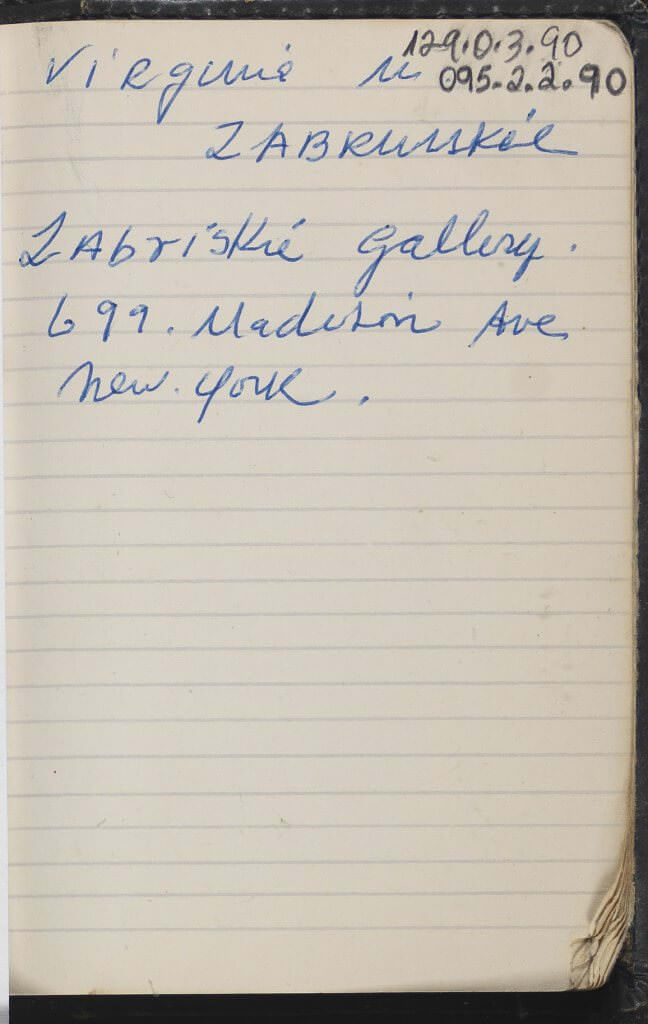 129.0.3.90
Virginia M
095.2.2.90
ZABRIUSKIE
Zabriskie Gallery.
699. Madison Ave
New. York.